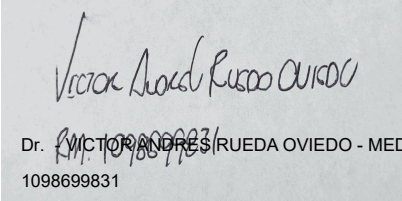 Victor Andrés Rueda Oviedo
RM. 1098699831
Dr. - VICTOR ANDRES RUEDA OVIEDO - MED
1098699831